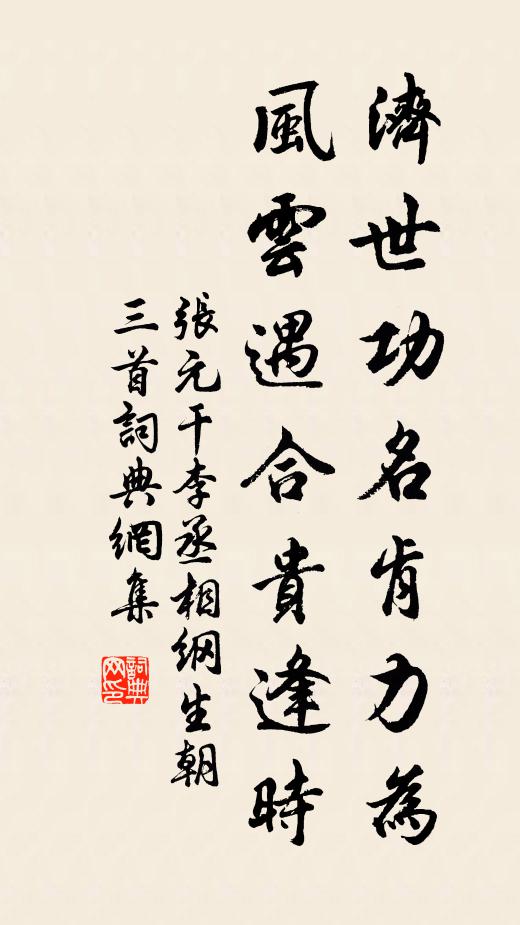 濟世功名肯力為
風雲遇合貴逢時
張元干李丞相綱生朝
三首詞典網集
詞典网印